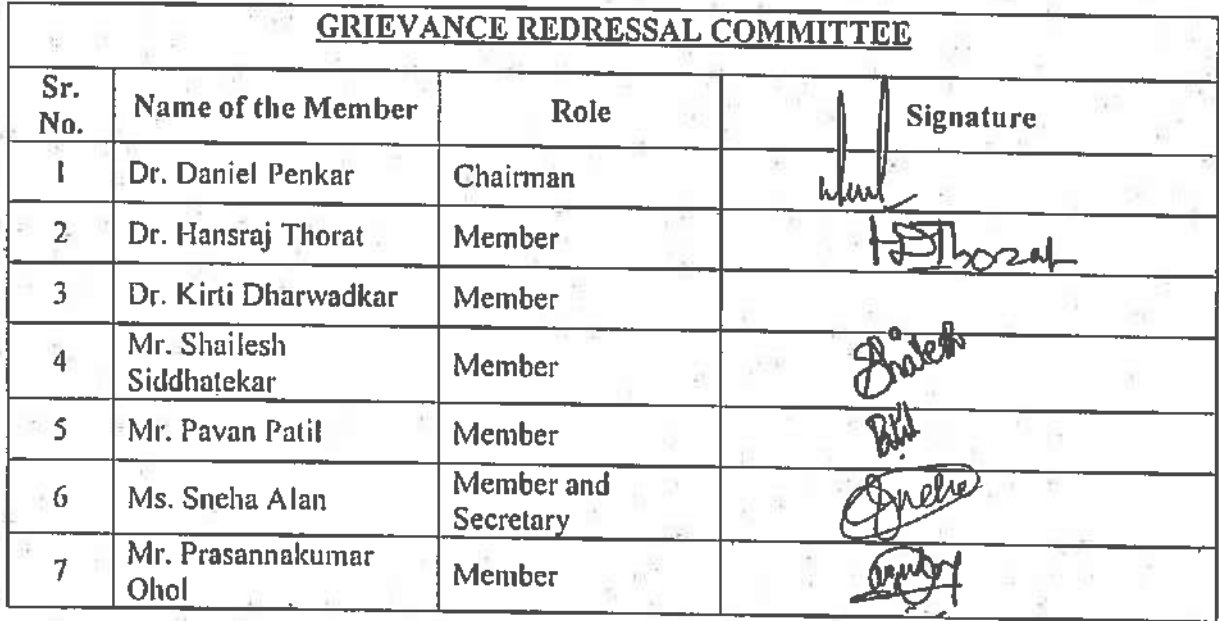 GRIEVANCE REDRESSAL COMMITTEE
Sr. No. Name of the Member Role Signature
1 Dr. Daniel Penkar Chairman
2 Dr. Hansraj Thorat Member HDThorat
3 Dr. Kirti Dharwadkar Member
4 Mr. Shailesh Siddhatekar Member Shailesh
5 Mr. Pavan Patil Member
6 Ms. Sneha Alan Member and Secretary Sneha
7 Mr. Prasannakumar Ohol Member